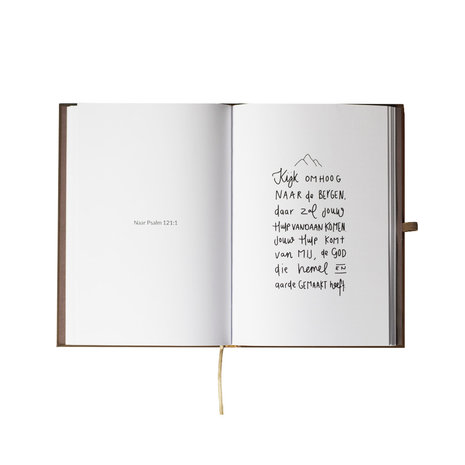 Naar Psalm 121:1
Kijk OMHOOG
NAAR de BERGEN,
daar zal jouw
Hulp VANDAAN KOMEN
Jouw Hulp KOMT
van MIJ, de GOD
die hemel EN
aarde GEMAAKT heeft